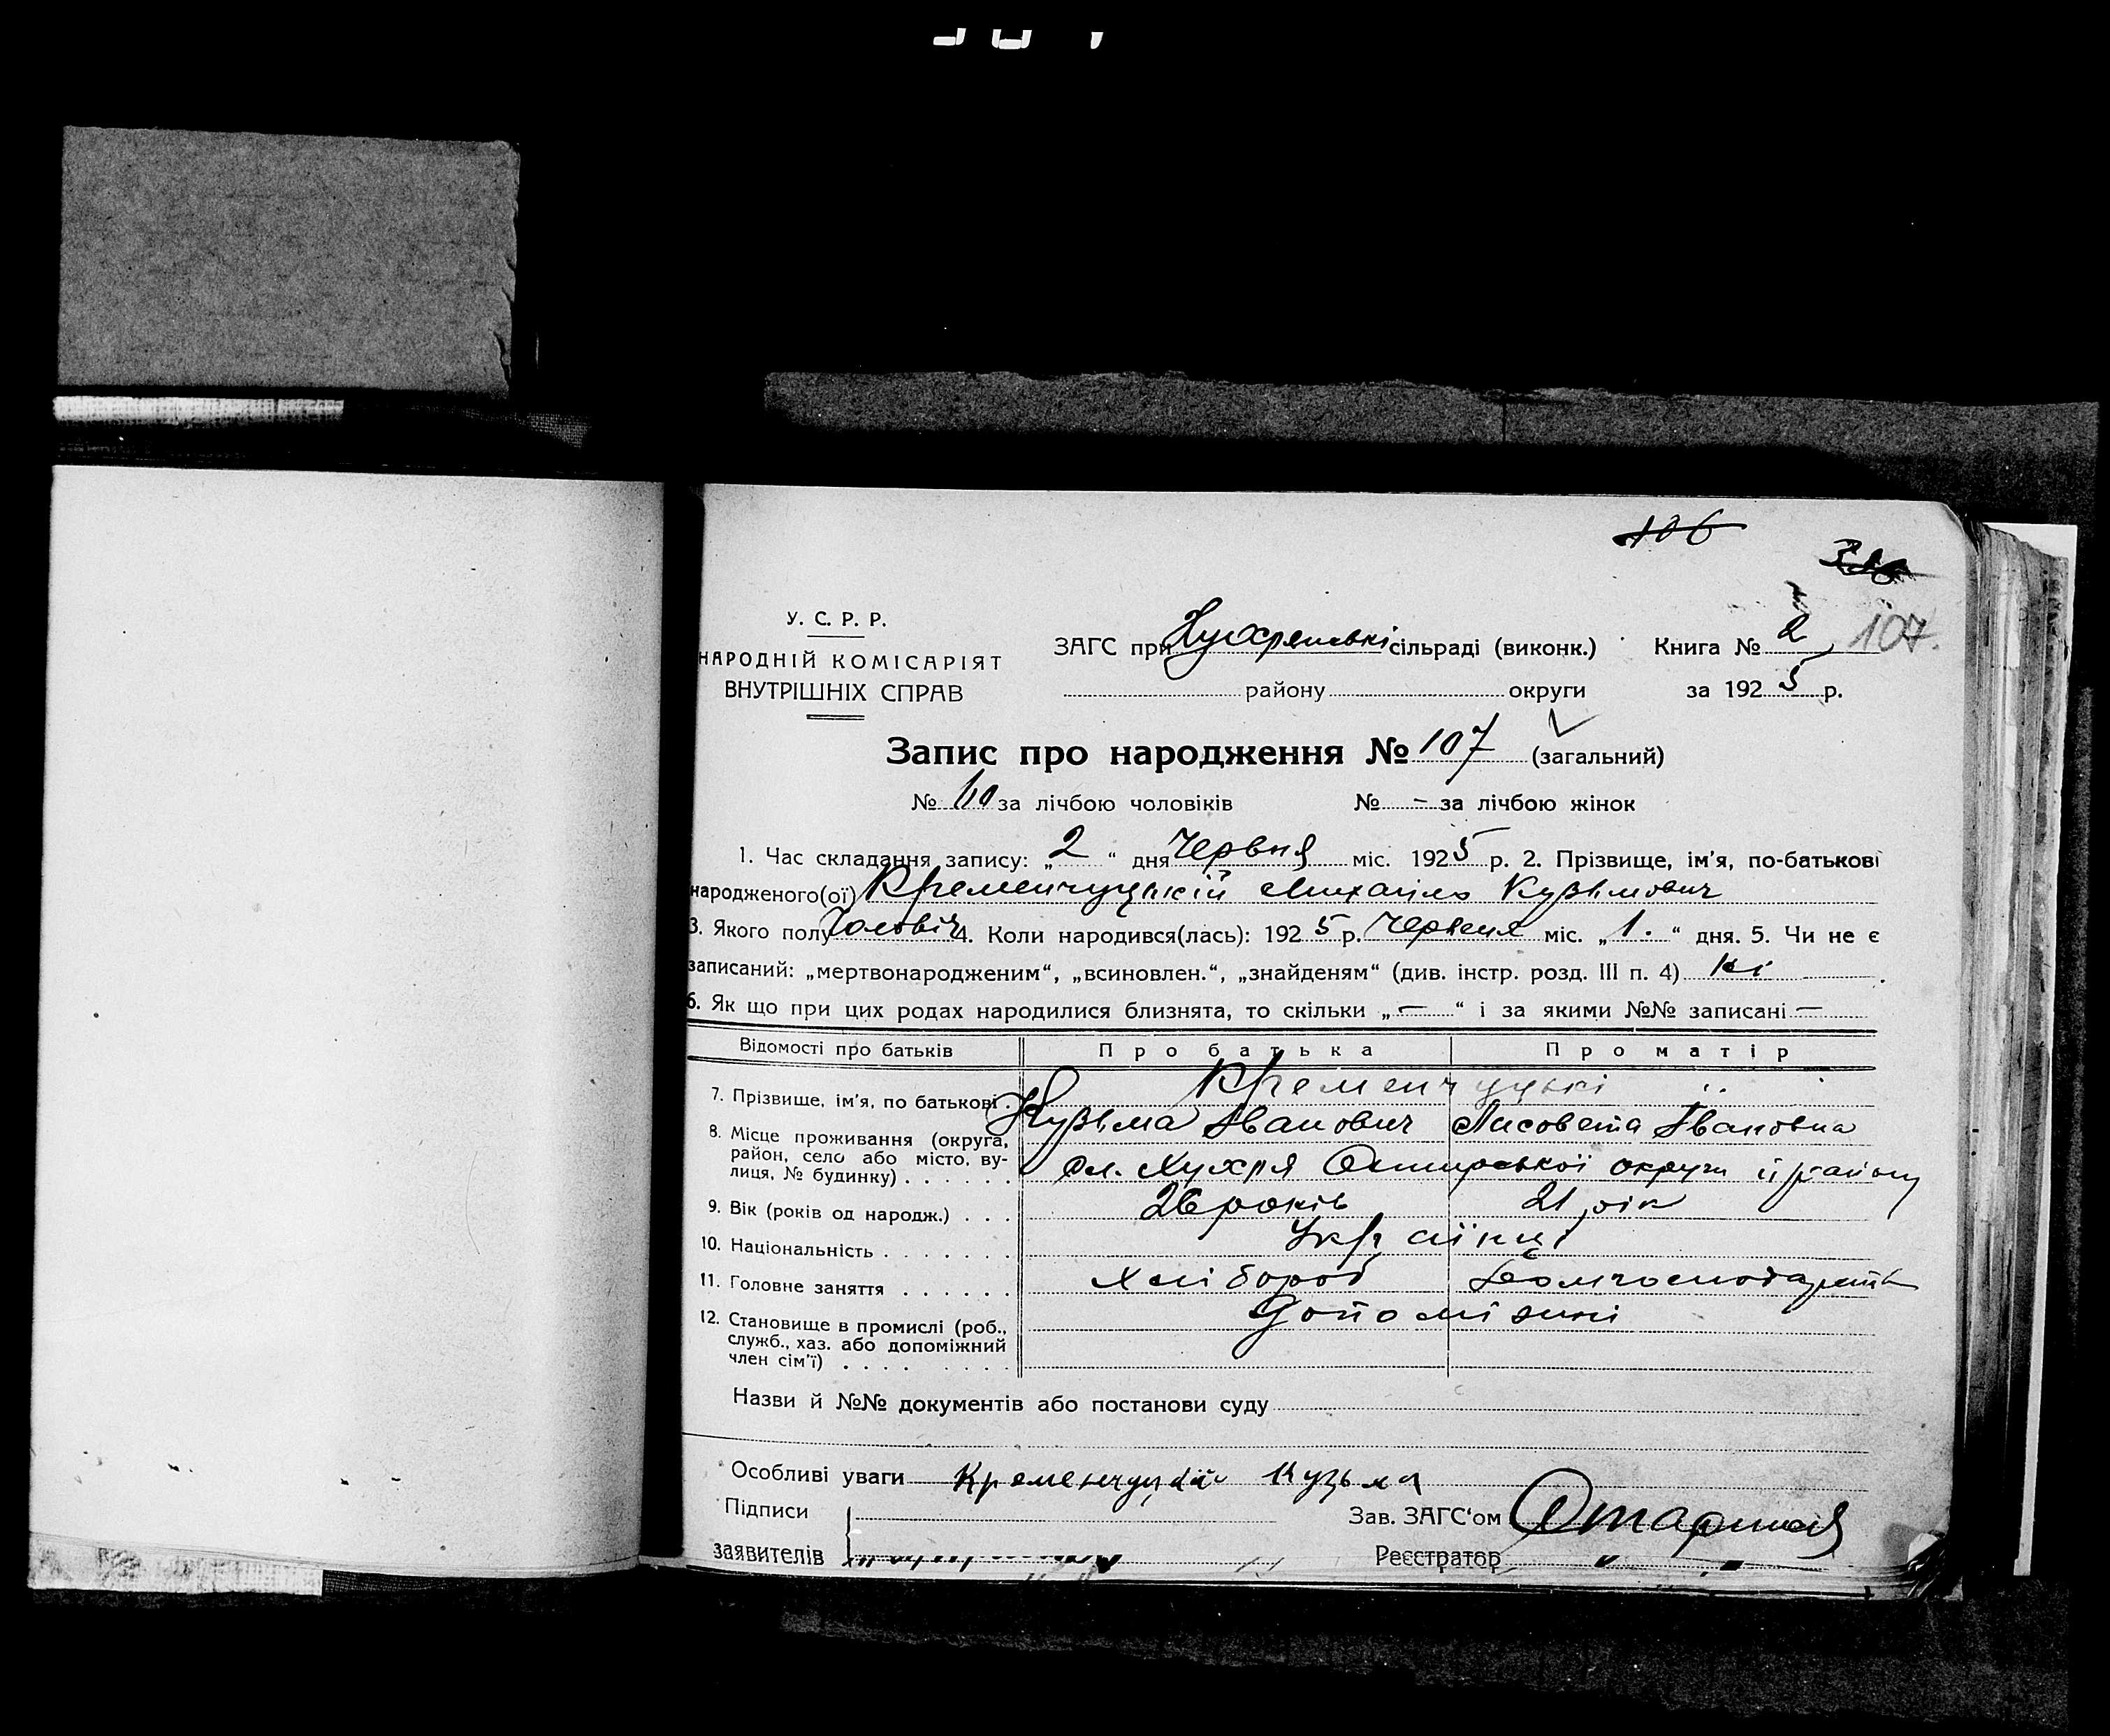 106
107.
У. С. Р. Р.
НАРОДНІЙ КОМІСАРІЯТ
ВНУТРІШНІХ СПРАВ
ЗАГС при сільраді (виконк.) Книга № 2
району округи за 1925 р.
Запис про народження № 107 (загальний)
№ за лічбою чоловіків № — за лічбою жінок
1. Час складання запису: „2“ дня Червня міс. 1925 р. 2. Прізвище, ім'я, по-батькові
народженого(ої) Кременчуцькій Михайло Кузьмович
3. Якого полу Чоловіч 4. Коли народився(лась): 1925 р. Червня міс. „1.“ дня. 5. Чи не є
записаний: „мертвонародженим“, „всиновлен.“, „знайденям“ (див. інстр. розд. III п. 4) ні.
6. Як що при цих родах народилися близнята, то скільки „—“ і за якими №№ записані —
Відомості про батьків Про батька Про матір
Кременчуцькі
7. Прізвище, ім'я, по батькові. Кузьма Іванович Лисовета Івановна
8. Місце проживання (округа,
район, село або місто, ву-
лиця, № будинку) . . . . . . сл. Хухря Охтирської округи й району
9. Вік (років од народж.) . . . 26 років 21 рік
10. Національність . . . . . . . Українці
11. Головне заняття . . . . . . Хлібороб Домгосподарств
12. Становище в промислі (роб.,
служб., хаз. або допоміжний
член сім'ї) . . . . . . . . . Допоміжні
Назви й №№ документів або постанови суду
Особливі уваги Кременчуцкій Кузьма
Підписи Зав. ЗАГС'ом
заявителів Реєстратор